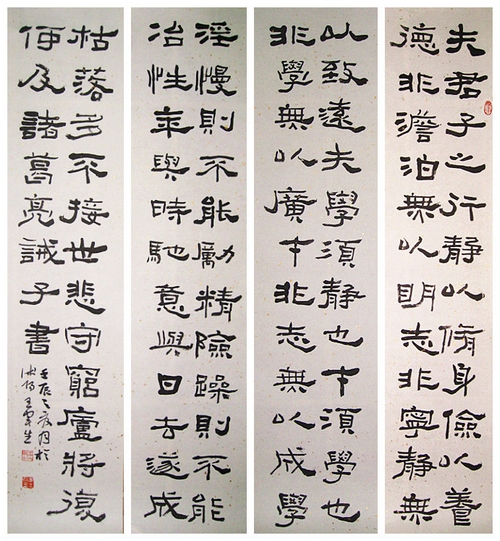 夫君子之行靜以脩身儉以養
德非澹泊無以明志非寧靜無
以致遠夫學須靜也才須學也
非學無以廣才非志無以成學
淫慢則不能勵精險躁則不能
冶性年與時馳意與日去遂成
枯落多不接世悲守窮廬將復
何及諸葛亮誡子書
壬辰之夏月於